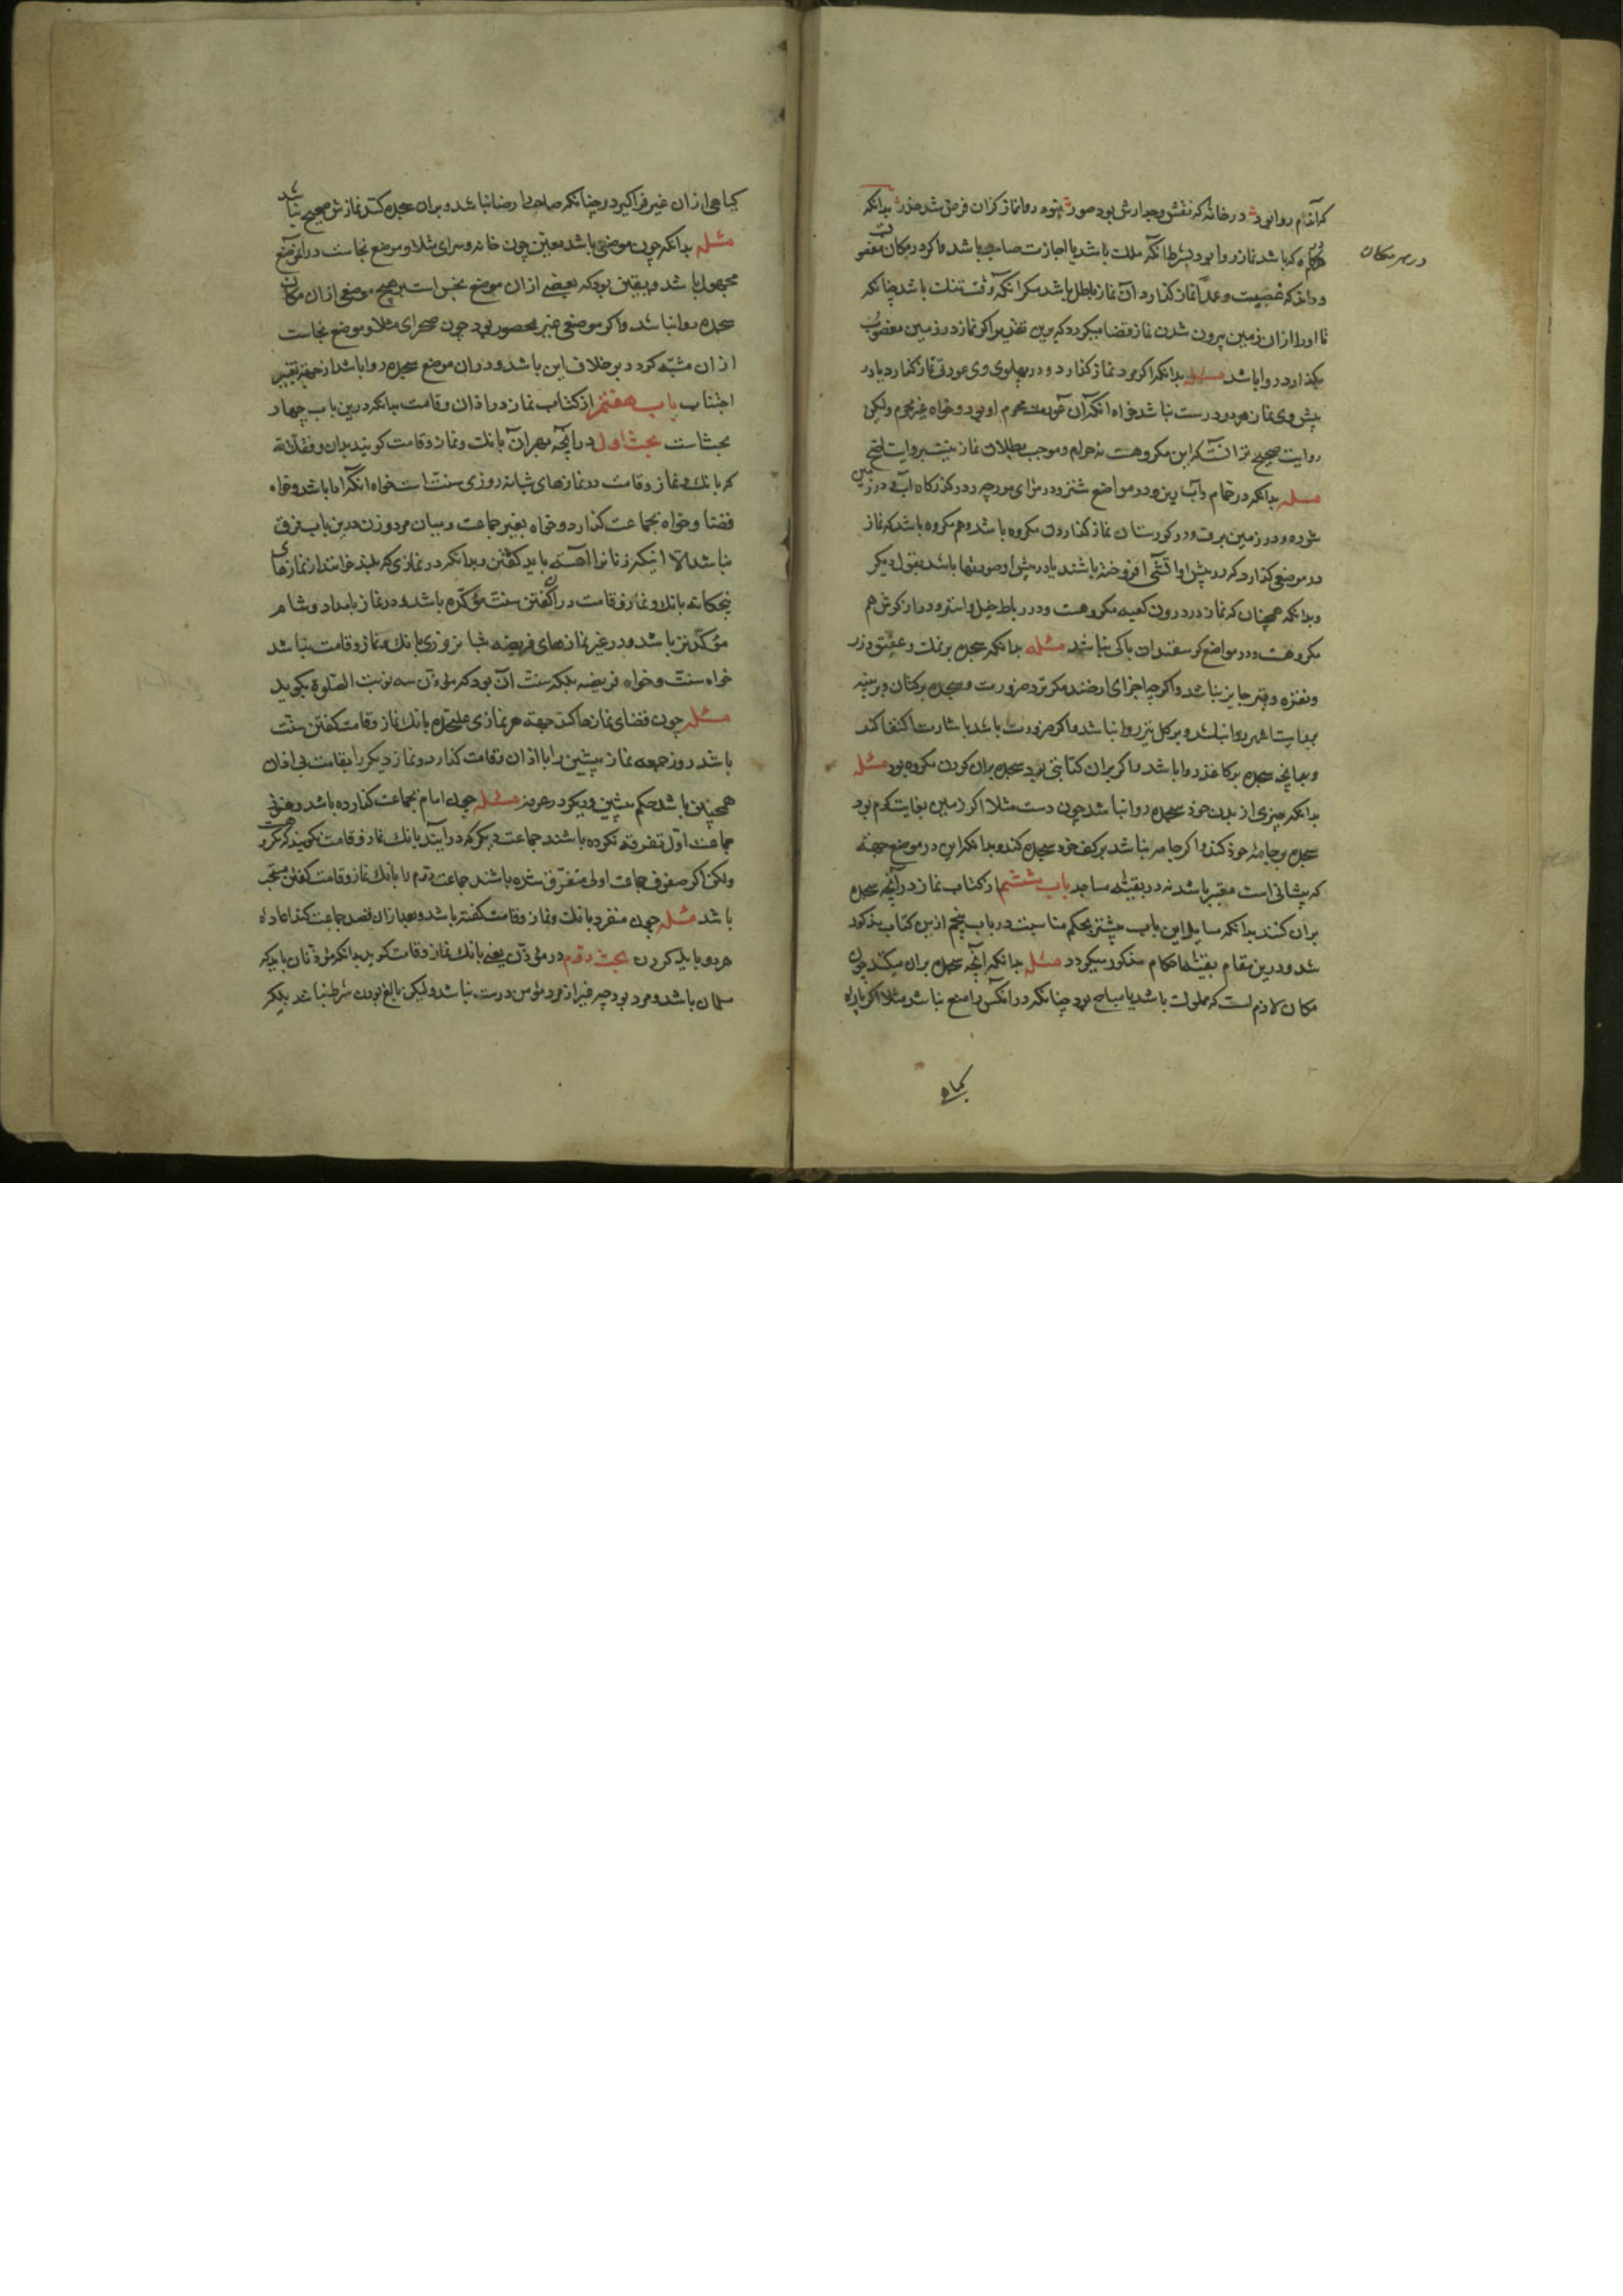 در هر مکان
که باشد نماز روا بود بشرط آنکه ملک باشد یا اجازت صاحب باشد و اگر در مکان مغصوب
و داند که غصبست و عمدا نماز گذارد آن نماز باطل باشد مگر آنکه وقت تنک باشد چنانکه
تا او را از ان زمین بیرون شدن نماز قضا میکردد که برین تقدیر اکر نماز در زمین مغصوب
بکذارد روا باشد مسئله بدانکه اکر مرد نماز کذارد و در پهلوی وی عورتی نماز کذارد یا در
پیش وی نماز هر دو درست نباشد خواه آنکه آن عورت محرم او بود و خواه غیر محرم ولیکن
روایت صحیح تر آنست که این مکروهست نه حرام و موجب بطلان نماز نیست بروایت اصح
مسئله بدانکه در حمام و آب ریز و در مواضع شتر و در سرای مورچه و در کذرکاه آب و در زمین
شوره و در زمین برف و در کورستان نماز کذاردن مکروه باشد و هم مکروه باشد که نماز
در موضعی کذارد که در پیش او آتشی افروخته باشند یا در پیش او صورتها باشد بقول دیکر
و بدانکه همچنان که نماز در درون کعبه مکروهست و در رباط خیل و استر و دراز کوش هم
مکروهست و در مواضع کوسفندان باکی نباشد مسئله بدانکه سجده بر نمک و عقیق و زر
و نقره و قیر جایز نباشد و اکرچه اجزای ارضند مکر نزد ضرورت و سجده بر کتان و بر پنبه
بروایت اشهر روا نباشد و بر کل نیز روا نباشد و اکر ضرورت باشد باشارت اکتفا کند
سجده بر کاغذ روا باشد و اکر بران کتابتی بود سجده بران کردن مکروه بود مسئله
بدانکه بر چیزی از بدن خود سجده روا نباشد چون دست مثلا اکر زمین بغایت کرم بود
سجده بر جامه خود کند و اکر جامه نباشد بر کف خود سجده کند و بدانکه این در موضع جبهه
که پیشانی است معتبر باشد نه در بقیه مساجد باب ششم از کتاب نماز در آنچه سجده
بران کنند بدانکه مسایل این باب بیشتر بحکم مناسبت در باب پنجم ازین کتاب مذکور
شد و درین مقام بقیه احکام مذکور میکردد مسئله بدانکه آنچه سجده بران میکند چون
مکان لازم است که مملوک باشد یا مباح بود چنانکه در آنکس را منع نباشد مثلا اکر پاره
کیاه
کیاهی از ان غیر فراکیرد چنانکه صاحب را رضا نباشد و بران سجده کند نمازش صحیح نباشد
مسئله بدانکه چون موضعی باشد معین چون خانه و سرای مثلا و موضع نجاست در ان موضع
مجهول باشد و یقین بود که بعضی از ان موضع نجس است بر هیچ موضعی از ان مکان
سجده روا نباشد و اکر موضعی غیر محصور بود چون صحرای مثلا و موضع نجاست
از ان مشتبه کردد بر خلاف این باشد و در ان موضع سجده روا باشد از جهة تعسر
اجتناب باب هفتم از کتاب نماز در اذان و قامت بدانکه درین باب چهار
بحث است بحث اول در آنچه بهر آن بانک و نماز و قامت کویند بدان وفقک الله
که بانک و نماز و قامت در نمازهای شبانه روزی سنت است خواه آنکه ادا باشد و خواه
قضا و خواه بجماعت کذارد و خواه بغیر جماعت و میان مرد و زن درین باب فرق
نباشد الا اینکه زنان را آهسته باید کفتن و بدانکه در نمازی که بلند خوانند از نمازهای
پنجکانه بانک و نماز و قامت در ان کفتن سنت مؤکده باشد و در نماز بامداد و شام
مؤکدتر باشد و در غیر نمازهای فریضه شبانروزی بانک و نماز و قامت نباشد
خواه سنت و خواه فریضه بلکه سنت آن بود که مؤذن سه نوبت الصلوة بکوید
مسئله چون قضای نمازها کند جهة هر نمازی علیحده بانک نماز و قامت کفتن سنت
باشد روز جمعه نماز پیشین را با اذان و قامت کذارد و نماز دیکر را بقامت بی اذان
همچنین باشد حکم پیشین و دیکر در عرفه مسئله چون امام بجماعت کذارده باشد و هنوز
جماعت اول تفرقه نکرده باشند جماعت دیکر که در آیند بانک نماز و قامت نکویند که مکروهست
ولکن اکر صفوف جماعت اولی متفرق شده باشند جماعت دوم را بانک نماز و قامت کفتن مستحب
باشد مسئله چون منفرد بانک و نماز و قامت کفته باشد و بعد از ان قصد جماعت کند اعاده
هر دو باید کردن بحث دوم در مؤذن یعنی بانک نماز و قامت کوید بدانکه مؤذنان باید که
مسلمان باشد و مرد بود چه غیر از مرد مؤمن درست نباشد ولیکن بالغ بودن شرط نباشد بلکه